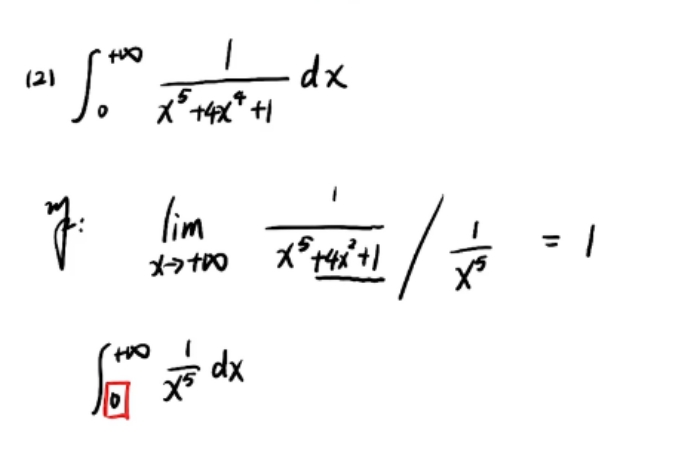 (2) ∫₀^{+∞} 1/(x⁵+4x⁴+1) dx
lim_{x→+∞} 1/(x⁵+4x²+1) / 1/x⁵ = 1
∫₀^{+∞} 1/x⁵ dx